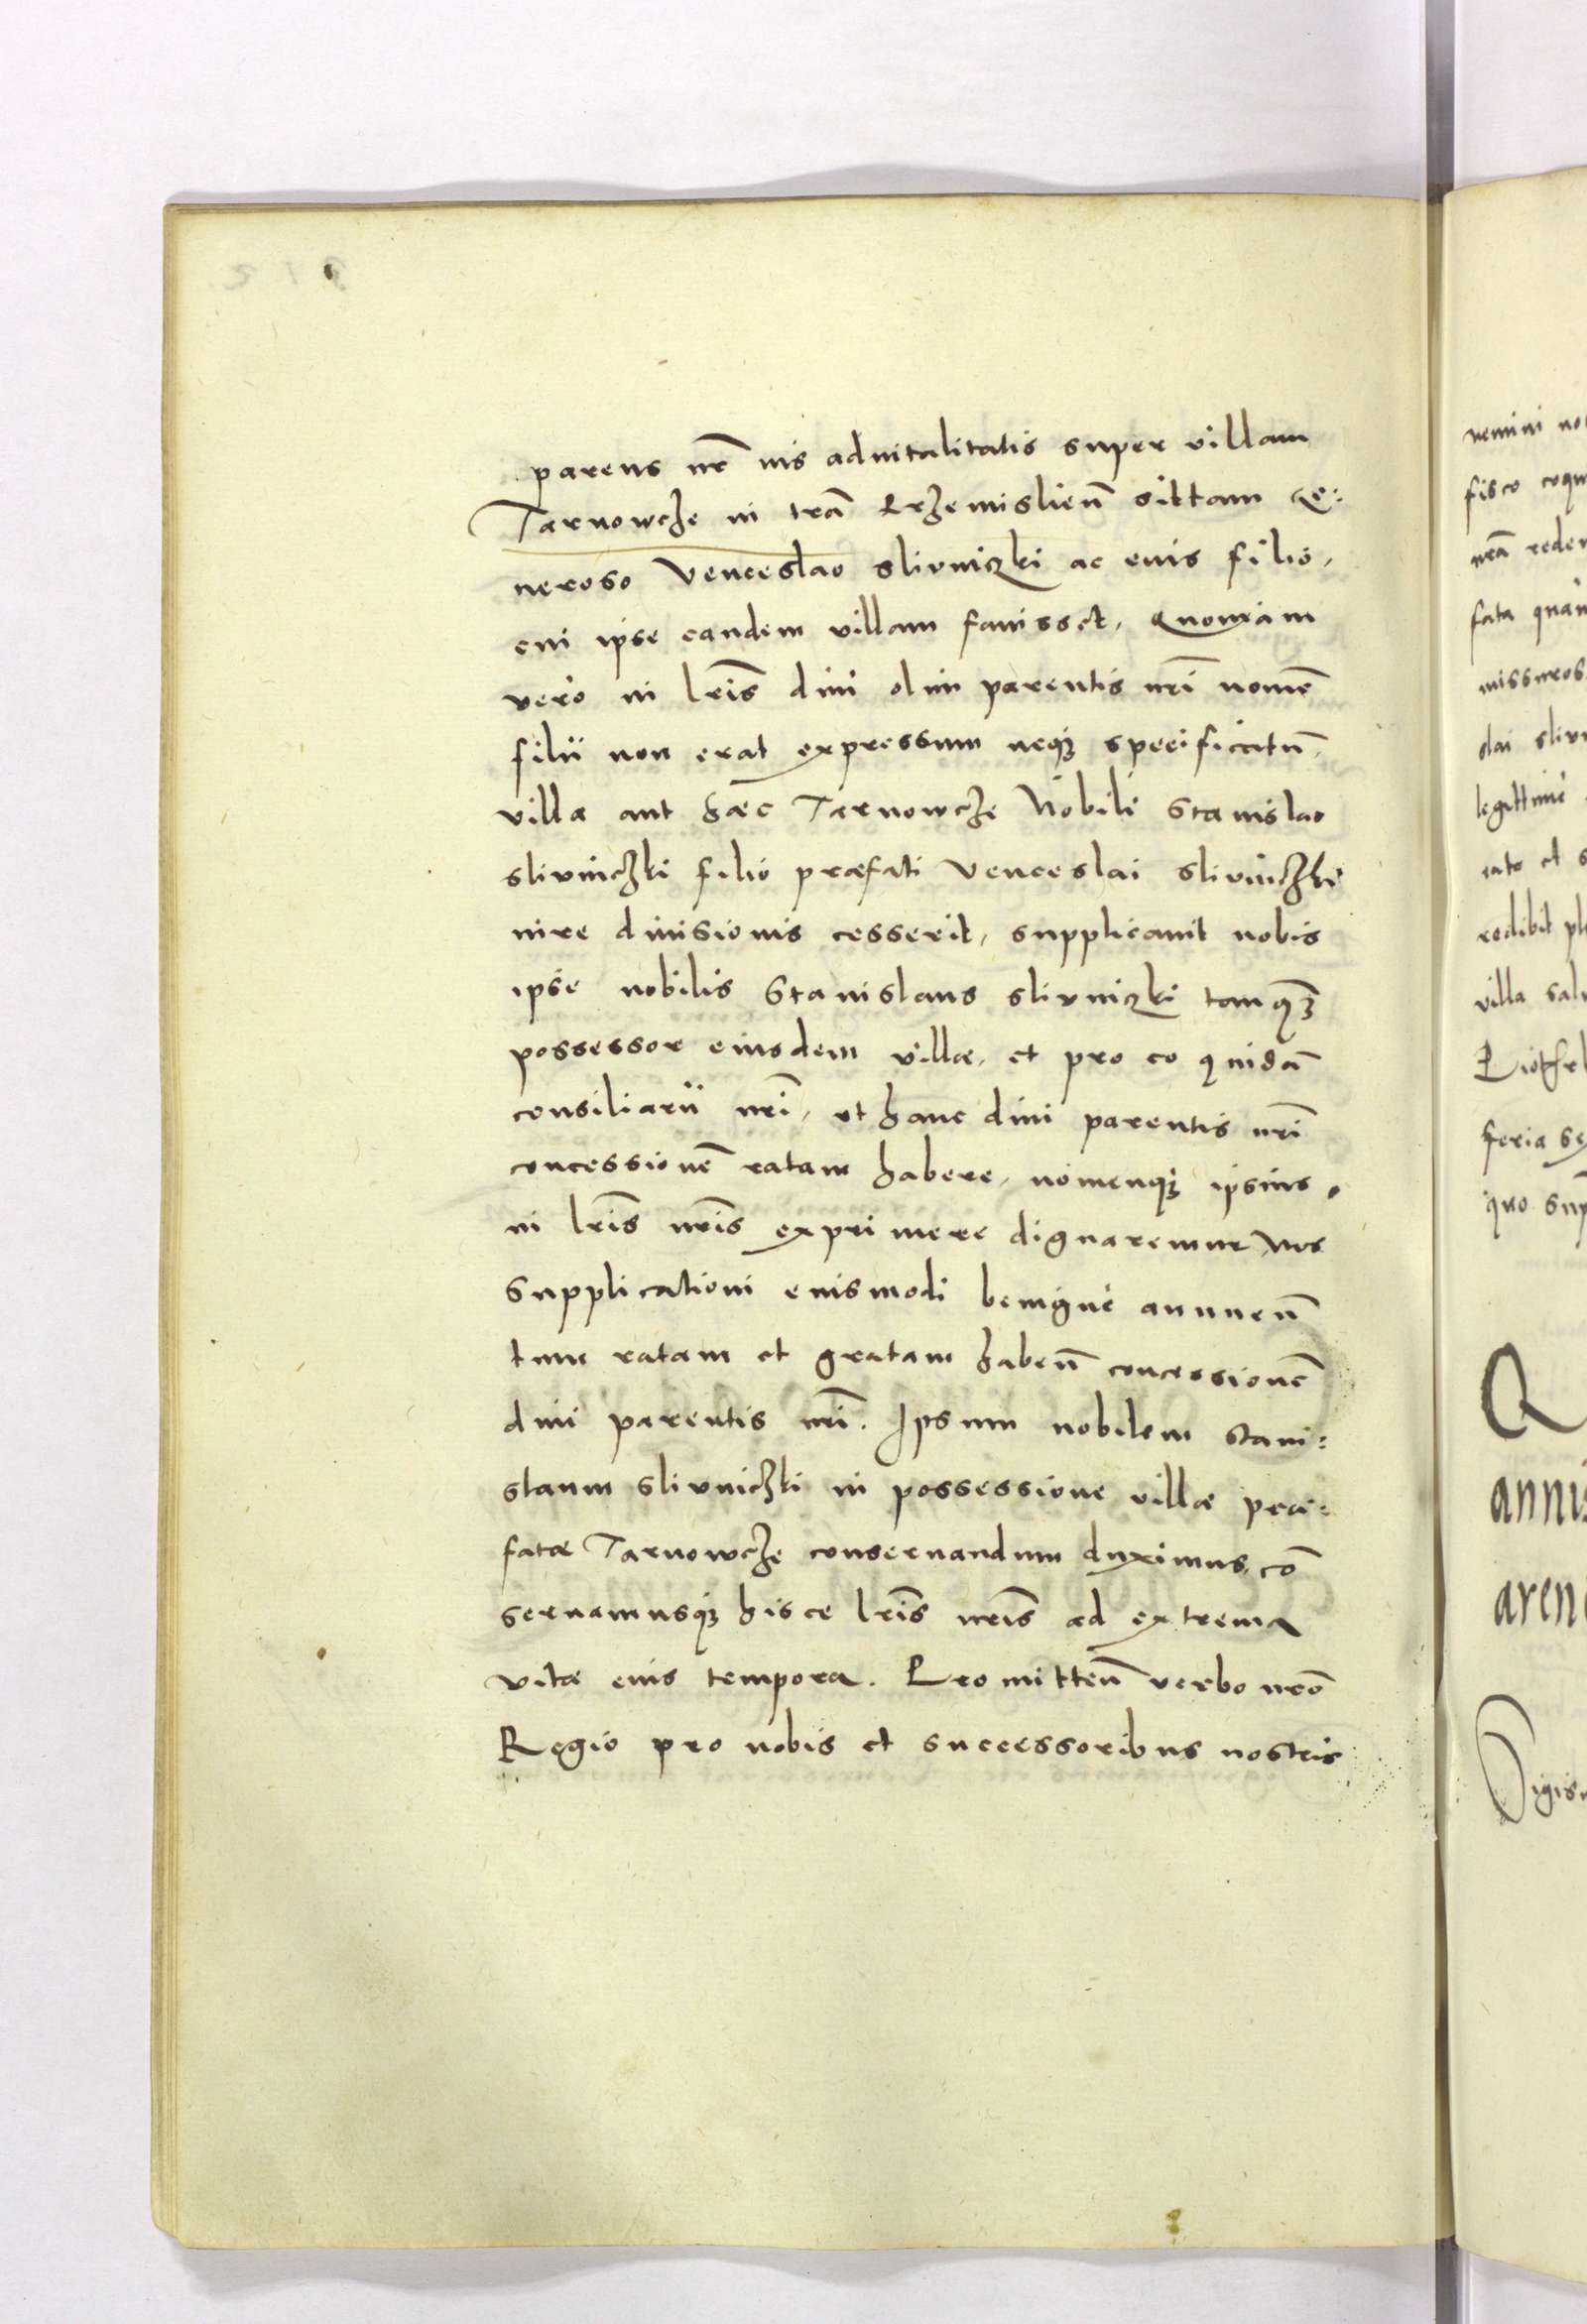 parens nr̄ ius aduitalitatis super villam
Tarnowcze in trā Przemislień sittam Ge:
neroso Venceslao Slivniczki ac eius filio,
cui ipse eandem villam fauisset, Quoniam
vero in lr̄is diui olim parentis nr̄i nomē
filii non erat expressum neqꝫ specificatū,
villa aut haec Tarnowcze Nobili Stanislao
Slivniczki filio præfati Venceslai Slivniczki
iure diuisionis cesserit, supplicauit nobis
ipse nobilis Stanislaus Slivniczki tanqꝫ
possessor eiusdem villæ, et pro eo quidā
consiliarii nr̄i, ut hanc diui parentis nr̄i
concessionē ratam habere, nomenqꝫ ipsius
in lr̄is nr̄is exprimere dignaremur, Nos
supplicationi euismodi benigne annueñ
tum ratam et gratam habeñ concessionē
diui parentis nr̄i. Ipsum nobilem Stani:
slaum Slivniczki in possessione villæ præ:
fatæ Tarnowcze conseruandum duximus, cō
seruamusqꝫ hisce lr̄is nr̄is ad extrema
vitæ eius tempora. Promitteñ verbo nr̄o
Regio pro nobis et successoribus nostris
nemini
fisco
nrā
fata
missuros
dai
legittime
et
redibit
villa
feria
quo
Q
annis